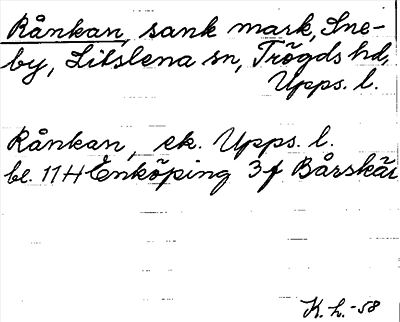 Rånkan, sank mark, Sne-
by, Litslena sn, Trögds hd,
Upps. l.
Rånkan, ek. Upps. l.
bl. 11H Enköping 3f Bårskär
K. h. -58